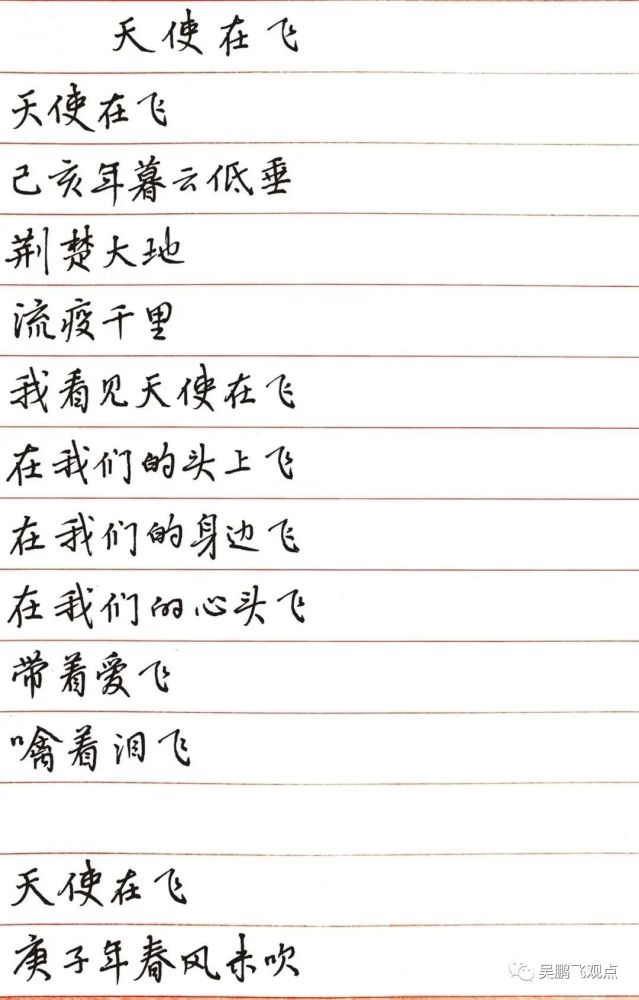 天使在飞
天使在飞
己亥年暮云低垂
荆楚大地
流疫千里
我看见天使在飞
在我们的头上飞
在我们的身边飞
在我们的心头飞
带着爱飞
噙着泪飞
天使在飞
庚子年春风未吹
吴鹏飞观点